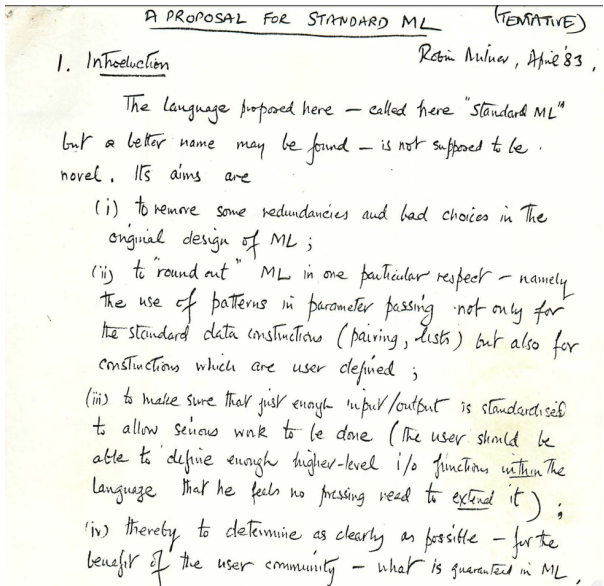 A PROPOSAL FOR STANDARD ML (TENTATIVE)
Robin Milner, April '83.
1. Introduction
The Language proposed here – called here "Standard ML"
but a better name may be found – is not supposed to be
novel. Its aims are
(i) to remove some redundancies and bad choices in the
original design of ML;
(ii) to "round out" ML in one particular respect – namely
the use of patterns in parameter passing not only for
the standard data constructions (pairing, lists) but also for
constructions which are user defined;
(iii) to make sure that just enough input/output is standardised
to allow serious work to be done (the user should be
able to define enough higher-level i/o functions within the
Language that he feels no pressing need to extend it);
(iv) thereby to determine as clearly as possible – for the
benefit of the user community – what is guaranteed in ML.